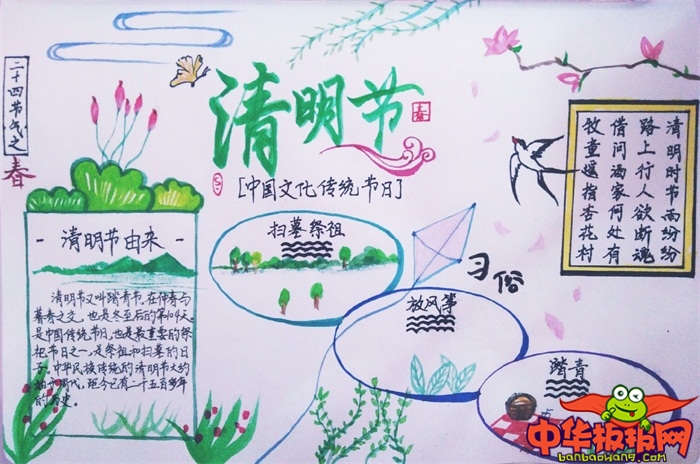 二十四节气之
春
清明节
春
[中国文化传统节日]
- 清明节由来 -
清明节又叫踏青节,在仲春与
暮春之交,也是冬至后的第104天
是中国传统节日,也是最重要的祭
祀节日之一,是祭祖和扫墓的日
子。中华民族传统的清明节大约
始于周代,距今已有二千五百多年
的历史。
扫墓祭祖
习俗
放风筝
踏青
清明时节雨纷纷
路上行人欲断魂
借问酒家何处有
牧童遥指杏花村
中华板报网
banbaowang.com